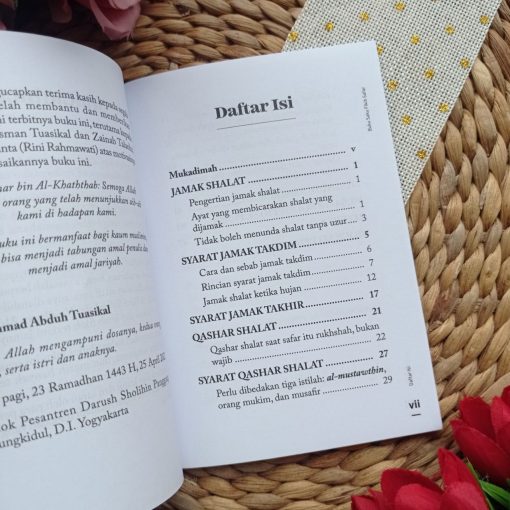 gucapkan terima kasih kepada
elah membantu dan
itnya buku ini, terutama
sman Tuasikal dan Zainab
nta (Rini Rahmawati) atas
saikannya buku ini.
ar bin Al-Khaththab: Semoga Allah
orang yang telah menunjukkan
kami di hadapan kami.
uku ini bermanfaat bagi kaum
bisa menjadi tabungan amal
menjadi amal jariyah.
mad Abduh Tuasikal
Allah mengampuni dosanya,
serta istri dan anaknya.
pagi, 23 Ramadhan 1443 H, 25 April
ok Pesantren Darush Sholihin
ungkidul, D.I. Yogyakarta
Daftar Isi
Mukadimah.......... v
JAMAK SHALAT.......... 1
Pengertian jamak shalat.......... 1
Ayat yang membicarakan shalat yang
dijamak.......... 1
Tidak boleh menunda shalat tanpa uzur.......... 3
SYARAT JAMAK TAKDIM.......... 5
Cara dan sebab jamak takdim.......... 6
Rincian syarat jamak takdim.......... 7
Jamak shalat ketika hujan.......... 12
SYARAT JAMAK TAKHIR.......... 17
QASHAR SHALAT.......... 21
Qashar shalat saat safar itu rukhshah, bukan
wajib.......... 22
SYARAT QASHAR SHALAT.......... 27
Perlu dibedakan tiga istilah: al-mustawthin,
orang mukim, dan musafir.......... 29
Daftar Isi
vii